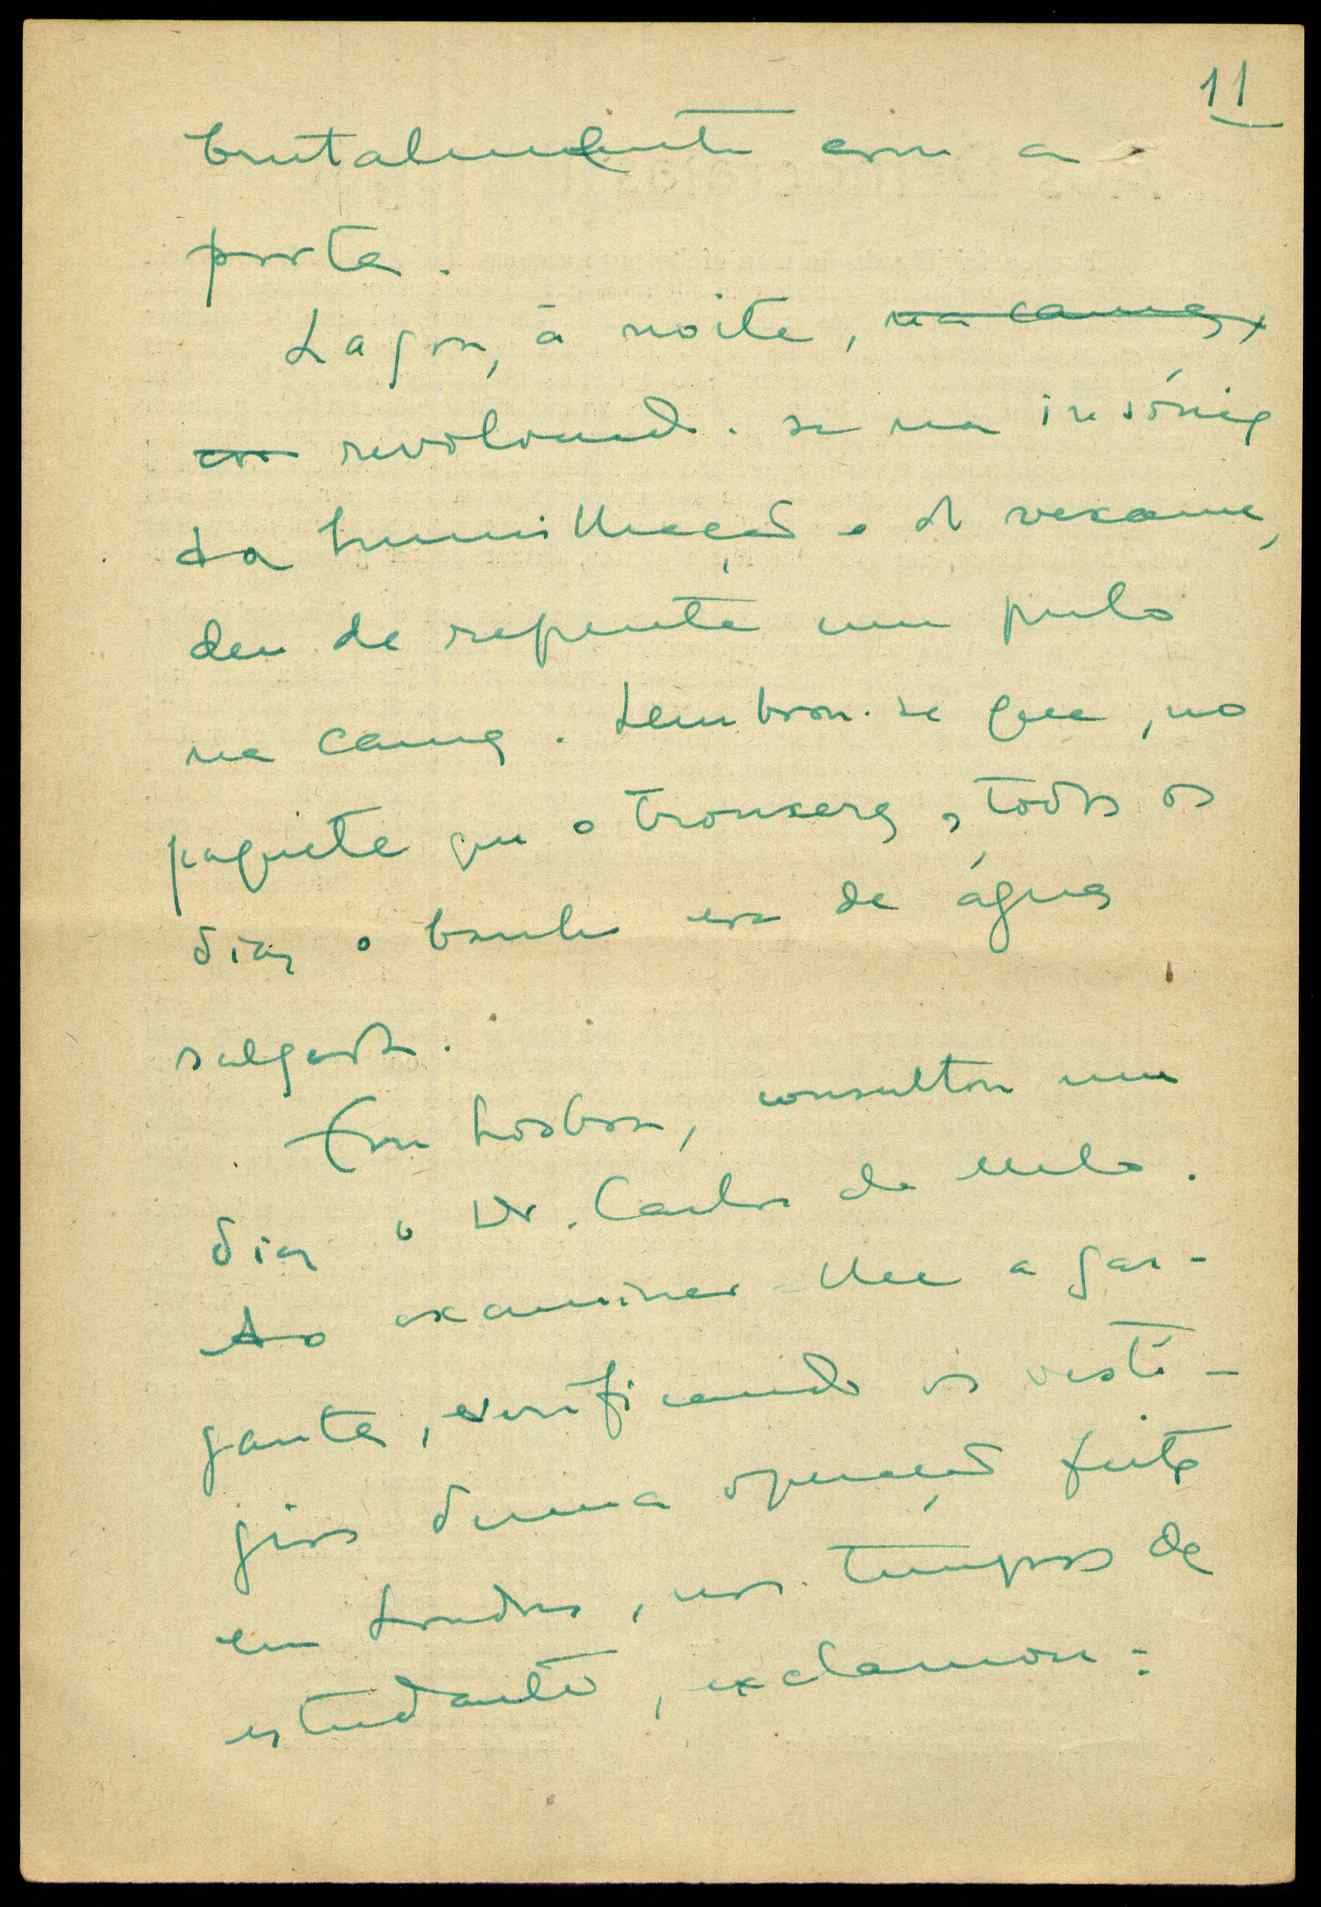 11
brutalmente com a
porta.
Lagoa, à noite, na cama,
revolvendo-se na insónia
da humilhação e do vexame,
deu de repente um pulo
na cama. Lembrou-se que, no
paquete que o trouxera, todos os
dias o banho era de água
salgada.
Em Lisboa, consultou um
dia o Dr. Carlos de Melo.
Ao examinar-lhe a gar-
ganta, verificando os vestí-
gios duma operação feita
em Londres, nos tempos de
estudante, exclamou: